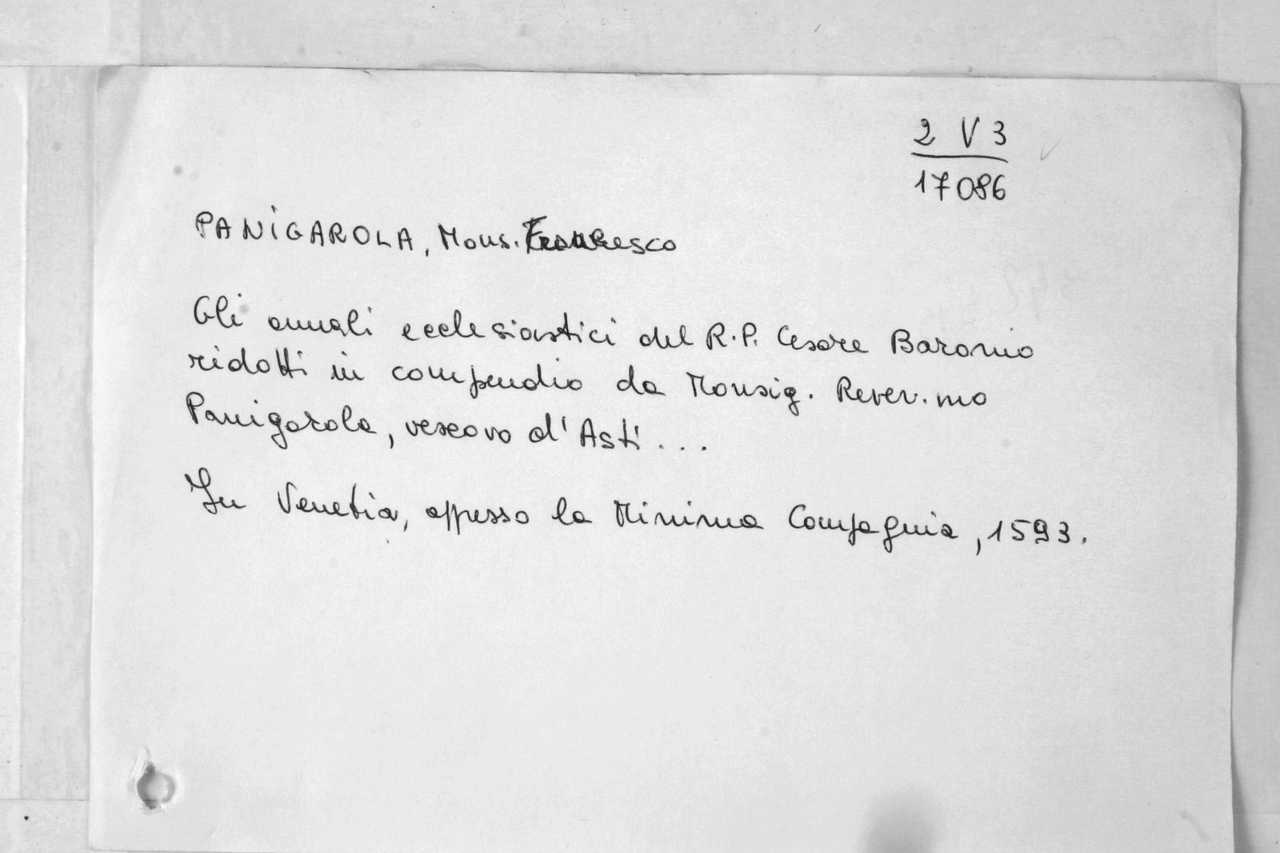 2 V 3
17086
PANIGAROLA, Mons. Francesco
Gli annali ecclesiastici del R.P. Cesare Baronio
ridotti in compendio da Monsig. Rever.mo
Panigarola, vescovo d'Asti ...
In Venetia, appresso la Minima Compagnia, 1593.